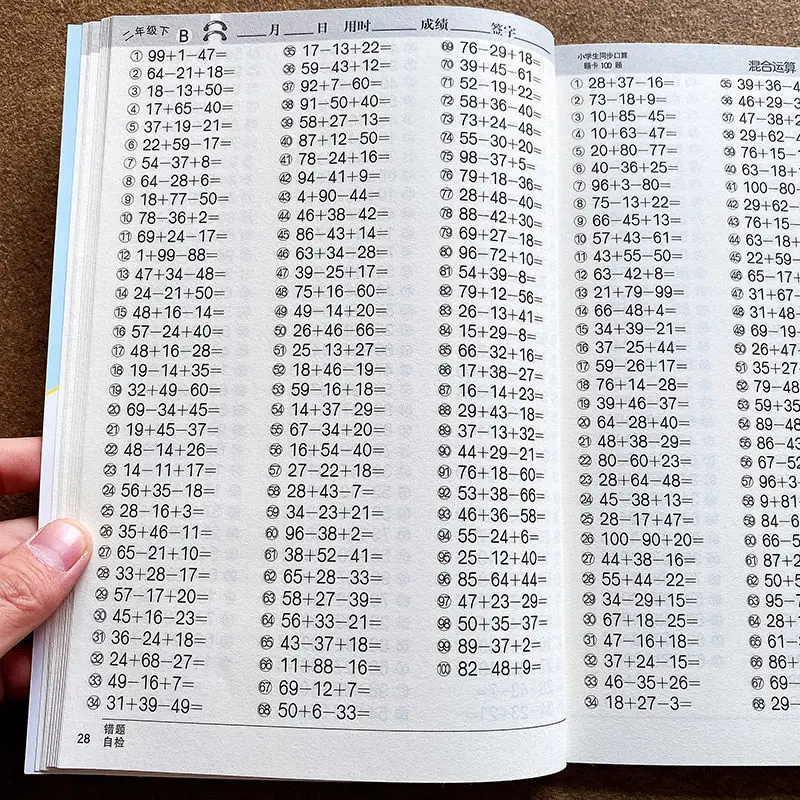 二年级下 B ____月____日 用时______成绩______签字______
① 99+1−47=
② 64−21+18=
③ 18−13+50=
④ 17+65−40=
⑤ 37+19−21=
⑥ 22+59−17=
⑦ 54−37+8=
⑧ 64−28+6=
⑨ 18+77−50=
⑩ 78−36+2=
⑪ 69+24−17=
⑫ 1+99−88=
⑬ 47+34−48=
⑭ 24−21+50=
⑮ 48+16−14=
⑯ 57−24+40=
⑰ 48+16−28=
⑱ 19−14+35=
⑲ 32+49−60=
⑳ 69−34+45=
㉑ 19+45−37=
㉒ 48−14+26=
㉓ 14−11+17=
㉔ 56+35−18=
㉕ 28−16+3=
㉖ 35+46−11=
㉗ 65−21+10=
㉘ 33+28−17=
㉙ 57−17+20=
㉚ 45+16−23=
㉛ 36−24+18=
㉜ 24+68−27=
㉝ 49−16+7=
㉞ 31+39−49=
㉟ 17−13+22=
㊱ 59−43+12=
㊲ 92+7−60=
㊳ 91−50+40=
㊴ 58+27−13=
㊵ 87+12−50=
㊶ 78−24+16=
㊷ 94−41+9=
㊸ 4+90−44=
㊹ 46+38−42=
㊺ 86−43+14=
㊻ 63+34−28=
㊼ 39−25+17=
㊽ 75+16−60=
㊾ 49−14+20=
㊿ 26+46−66=
51 25−13+27=
52 18+46−19=
53 59−16+18=
54 14+37−29=
55 67−34+20=
56 16+54−40=
57 27−22+18=
58 28+43−7=
59 34−23+21=
60 96−38+2=
61 38+52−41=
62 65+28−33=
63 58+27−39=
64 56+33−21=
65 43−37+18=
66 11+88−16=
67 69−12+7=
68 50+6−33=
69 76−29+18=
70 39+45−61=
71 52−19+22=
72 58+36−40=
73 73+24−48=
74 55−30+20=
75 98−37+5=
76 79+18−36=
77 28+48−40=
78 88−42+30=
79 69+27−18=
80 96−72+10=
81 54+39−8=
82 79+12−56=
83 26−13+41=
84 15+29−8=
85 66−32+16=
86 17+38−27=
87 16−14+23=
88 29+43−18=
89 37−13+32=
90 44+29−21=
91 76+18−60=
92 53+38−66=
93 46+36−58=
94 55−24+6=
95 25−12+40=
96 85−64+44=
97 47+23−29=
98 50+35−37=
99 89−37+2=
100 82−48+9=
28 错题
自检
小学生同步口算
题卡 100 题
混合运算
① 28+37−16=
② 73−18+9=
③ 10+85−45=
④ 10+63−47=
⑤ 20+80−77=
⑥ 40−36+25=
⑦ 96+3−80=
⑧ 75−13+22=
⑨ 66−45+13=
⑩ 57+43−61=
⑪ 43+55−50=
⑫ 63−42+8=
⑬ 21+79−99=
⑭ 66−48+4=
⑮ 34+39−21=
⑯ 37−25+44=
⑰ 59−26+17=
⑱ 76+14−28=
⑲ 39+46−37=
⑳ 64−28+40=
㉑ 48+38−29=
㉒ 80−60+23=
㉓ 28+64−48=
㉔ 45−38+13=
㉕ 28−17+47=
㉖ 100−90+20=
㉗ 44+38−16=
㉘ 55+44−22=
㉙ 34−29+15=
㉚ 67+18−25=
㉛ 47−16+18=
㉜ 37+24−15=
㉝ 46−35+26=
㉞ 18+27−3=
㉟ 39+36−4
㊱ 46+29−3
㊲ 47−38+2
㊳ 29+62−4
㊴ 76+15−
㊵ 63−18+
㊶ 100−80
㊷ 29+62−
㊸ 76+15−
㊹ 63−18+
㊺ 22+59−
㊻ 65−17+
㊼ 31+67−
㊽ 31+48−
㊾ 69−19−
㊿ 26+47−
51 35+27−
52 79−48
53 59+35
54 89−48
55 86−43
56 67−52
57 96+3−
58 9+81
59 84−6
60 66−5
61 87+
62 50+5
63 95−7
64 28+1
65 55−
66 86+
67 69−
68 29−